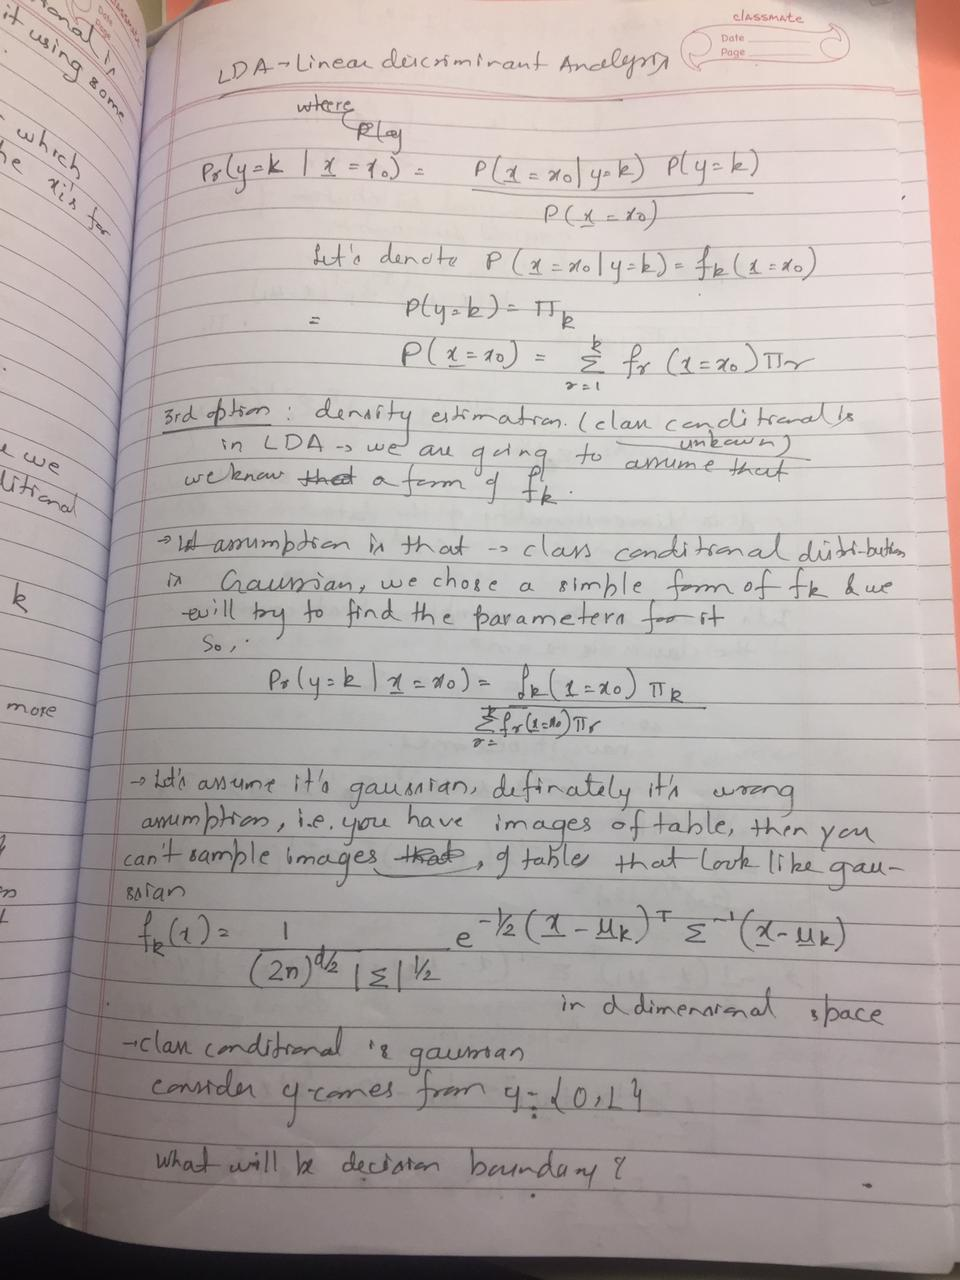 classmate
Date
Page
LDA → Linear discriminant Analysis
where
Pr(y=k | x = x0) = P(x = x0 | y=k) P(y=k)
P(x = x0)
Let's denote P(x = x0 | y=k) = fk(x = x0)
= P(y=k) = πk
P(x = x0) = Σ_{r=1}^{k} fr (x = x0) πr
3rd option : density estimation. (class conditional is
unkown)
in LDA → we are going to assume that
we know that a form of fk.
→ 1st assumption is that → class conditional distribution
is Gaussian, we chose a simple form of fk & we
will try to find the parameters for it
So,
Pr(y=k | x = x0) = fk(x = x0) πk
Σ_{r=}^{k} fr(x=x0) πr
→ Let's assume it's gaussian, definately it's wrong
assumption, i.e. you have images of table, then you
can't sample images that, of table that look like gau-
ssian
fk(x) = 1 e^{-1/2 (x - μk)^T Σ^{-1} (x - μk)}
(2π)^{d/2} |Σ|^{1/2}
in d dimensional space
→ class conditional is gaussian
consider y comes from y = {0,1}
what will be decision boundary ?
it using some
which
the x's for
we
ditional
k
more